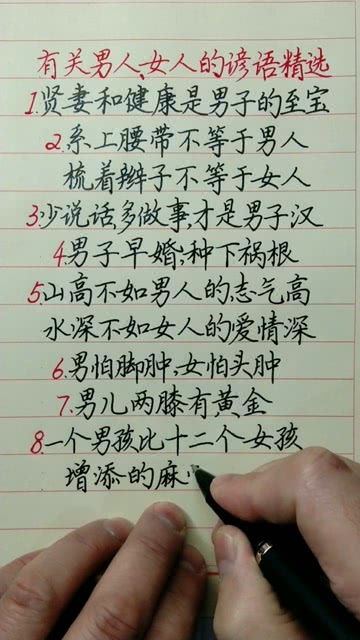 有关男人、女人的谚语精选
1.贤妻和健康是男子的至宝
2.系上腰带不等于男人
梳着辫子不等于女人
3.少说话,多做事,才是男子汉
4.男子早婚;种下祸根
5.山高不如男人的志气高
水深不如女人的爱情深
6.男怕脚肿,女怕头肿
7.男儿两膝有黄金
8.一个男孩比十二个女孩
增添的麻